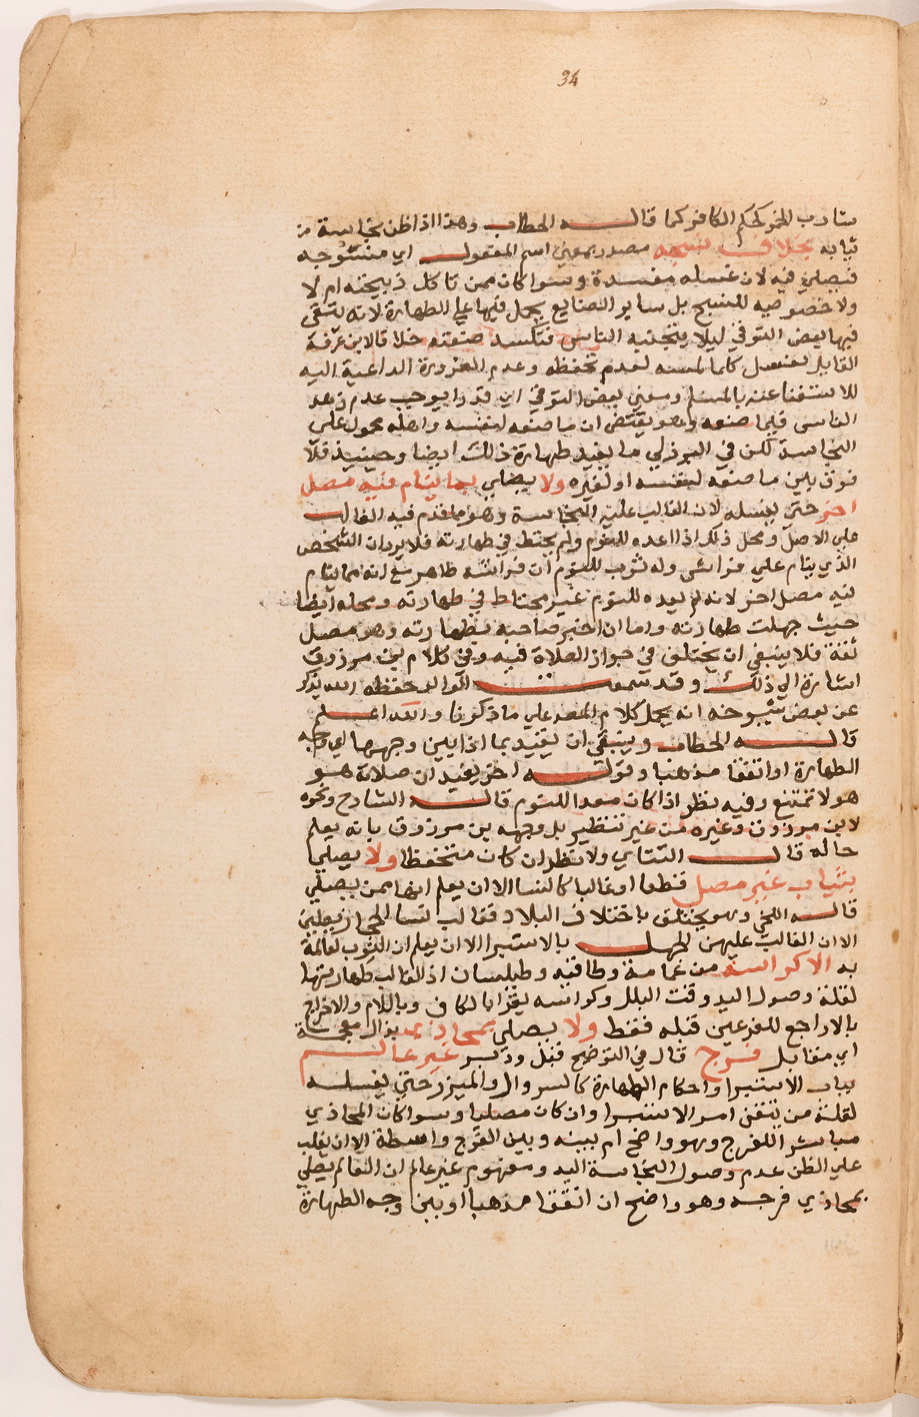 34
شارب الخمر كحكم الكافر كما قال الحطاب وهذا اذا ظن نجاسة من
ثيابه بخلاف نسجه مصدر بمعني اسم المفعول اي منسوجه
فيصلي فيه لان غسله مفسدة وسوا كان ممن تاكل ذبيحته ام لا
ولا خصوصيه للنسيج بل ساير الصنايع يحمل فيها علي الطهارة لانه يتقي
فيها بعض التوقي ليلا يتجنبه الناس فتكسد صنعته خلافا لابن عرفة
القايل بغسل كلما لمسه لعدم تحفظه وعدم الضرورة الداعية اليه
للاستغنا عنه بالمسلم ومعني بعض التوقي اي قدرا يوجب عدم زهد
الناس فيما صنعه وهو يقتضي ان ما صنعه لنفسه واهله محمول علي
النجاسة لكن في البرزلي ما يفيد طهارة ذلك ايضا وحينيذ فلا
فرق بين ما صنعه لنفسه او لغيره ولا يصلي بما ينام فيه مصل
اخر حتي يغسله لان الغالب عليه النجاسة وهو مما قدم فيه الغالب
علي الاصل ومحل ذلك اذا اعده للنوم ولم يحتط في طهارته فلا يرد ان الشخص
الذي ينام علي فراش وله ثوب للنوم ان فراشه طاهر مع انه مما ينام
فيه مصل اخر لانه لم يعده للنوم غير محتاط في طهارته ومحله ايضا
حيث جهلت طهارته واما ان اخبر صاحبه بطهارته وهو مصل
ثقة فلا ينبغي ان يختلف في جواز الصلاة فيه وفي كلام ابن مرزوق
اشارة الي ذلك وقد سمعت الوالد حفظه الله يذكر
عن بعض شيوخه انه يحمل كلام المص علي ما ذكرنا والله اعلم
قال الحطاب وينبغي ان يقيد بما اذا يبين وجهها اي وجه
الطهارة او اتفقا مذهبا وقوله اخر يفيد ان صلاته هو
هو لا تمتنع وفيه نظر اذا كان معدا للنوم قاله الشارح ونحوه
لابن مرزوق وغيره من غير تنظير بل وجهه بن مرزوق بانه يعلم
حاله قال التتاي ولا نظر ان كان متحفظا ولا يصلي
بثياب غير مصل قطعا او غالبا كالنسا الا ان يعلم انها ممن يصلي
قاله اللخمي وهو يختلف باختلاف البلاد فغالب نسا الحجاز يصلين
الا ان الغالب عليهن الجهل بالاستبرا الا ان يعلم ان الثوب لعالمة
به الا كراسه من عمامة وطاقيه وطيلسان اذ الغالب طهارتها
لقلة وصول اليد وقت البلل وكراسه يقرا بالكاف وباللام والاخراج
بالا راجع للفرعين قبله فقط ولا يصلي بمحاذي بذال معجمة
اي مقابل فرج قال في التوضيح قبل ودبر غير عالم
بباب الاستبرا واحكام الطهارة كالسروال والميزر حتي يغسله
لقلة من يتقن امر الاستبرا وان كان مصليا وسوا كان المحاذي
مباشرا للفرج وهو واضح ام بينه وبين الفرج واسطة الا ان يغلب
علي الظن عدم وصول النجاسة اليه ومفهوم غير عالم ان العالم يصلي
بمحاذي فرجه وهو واضح ان اتفقا مذهبا او بين وجه الطهارة